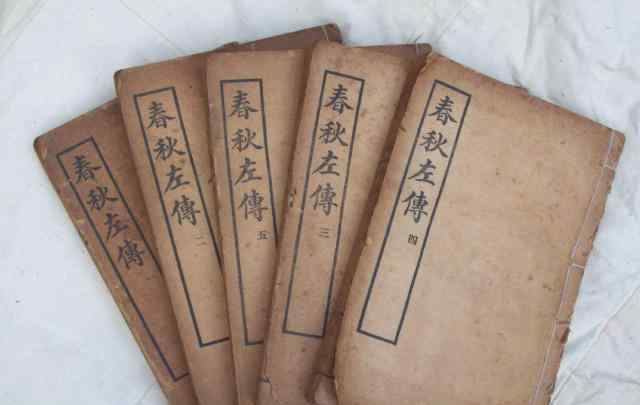 春秋左傳
一
春秋左傳
二
春秋左傳
五
春秋左傳
三
春秋左傳
四